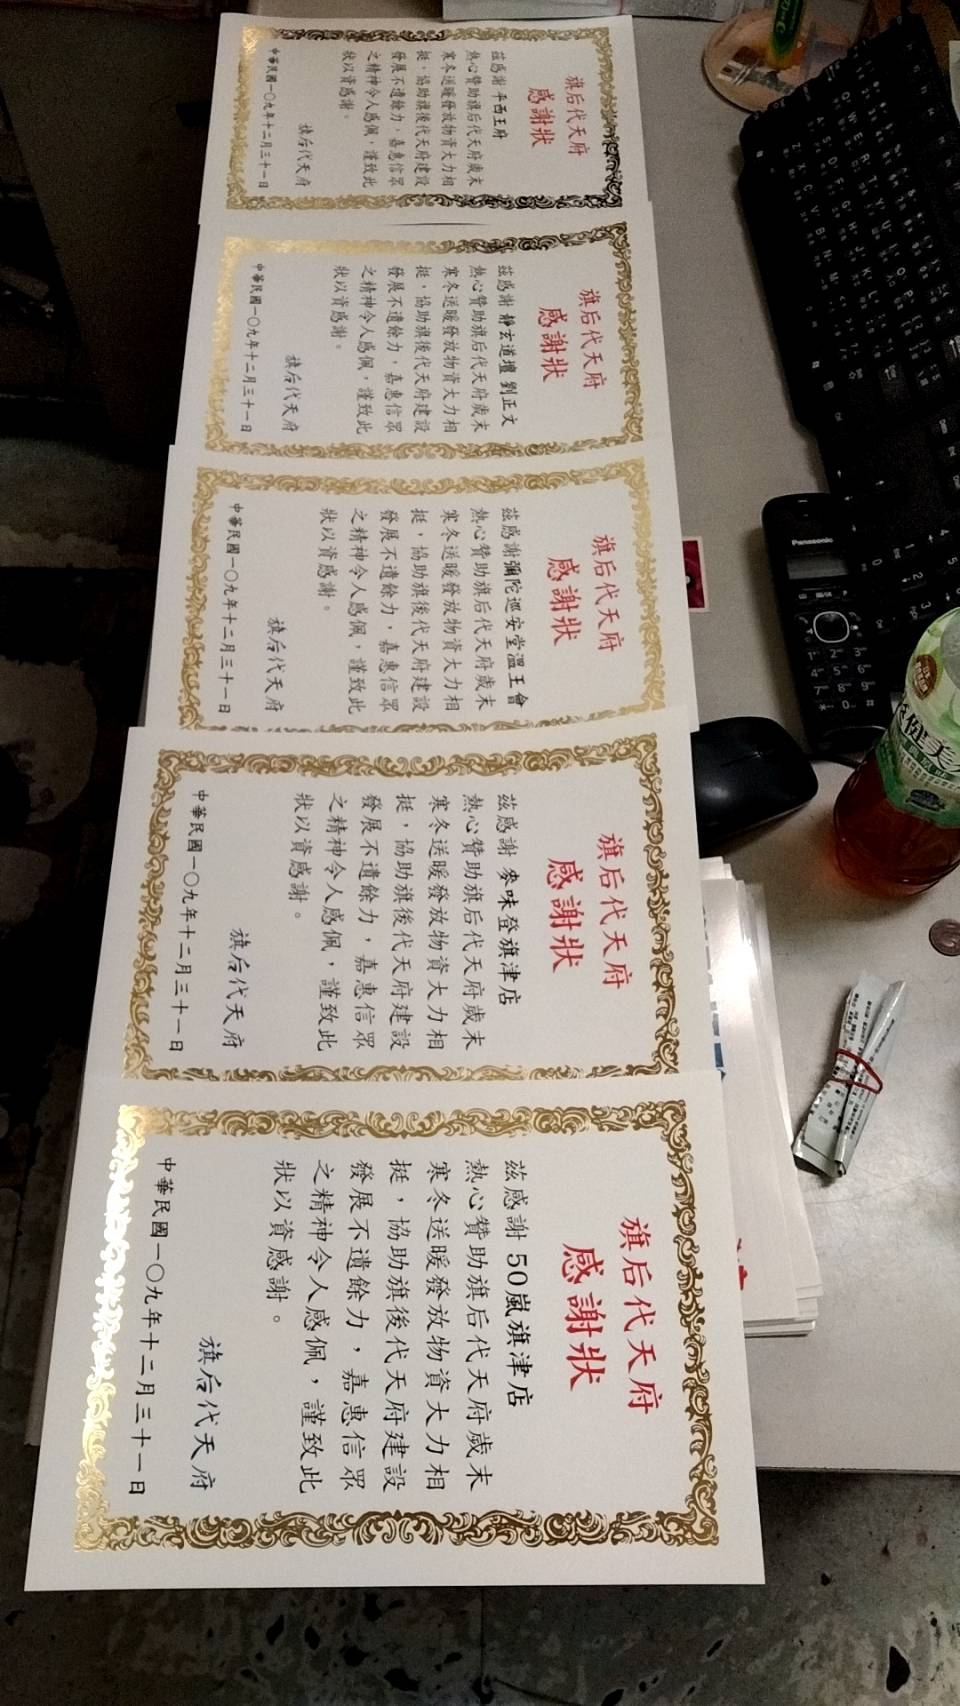 旗后代天府
感謝狀
茲感謝 平西王府
熱心贊助旗后代天府歲末
寒冬送暖發放物資大力相
挺，協助旗後代天府建設
發展不遺餘力，嘉惠信眾
之精神令人感佩，謹致此
狀以資感謝。
旗后代天府
中華民國一〇九年十二月三十一日
旗后代天府
感謝狀
茲感謝 靜玄道壇 劉正文
熱心贊助旗后代天府歲末
寒冬送暖發放物資大力相
挺，協助旗後代天府建設
發展不遺餘力，嘉惠信眾
之精神令人感佩，謹致此
狀以資感謝。
旗后代天府
中華民國一〇九年十二月三十一日
旗后代天府
感謝狀
茲感謝彌陀巡安堂溫王會
熱心贊助旗后代天府歲末
寒冬送暖發放物資大力相
挺，協助旗後代天府建設
發展不遺餘力，嘉惠信眾
之精神令人感佩，謹致此
狀以資感謝。
旗后代天府
中華民國一〇九年十二月三十一日
旗后代天府
感謝狀
茲感謝 麥味登旗津店
熱心贊助旗后代天府歲末
寒冬送暖發放物資大力相
挺，協助旗後代天府建設
發展不遺餘力，嘉惠信眾
之精神令人感佩，謹致此
狀以資感謝。
旗后代天府
中華民國一〇九年十二月三十一日
旗后代天府
感謝狀
茲感謝 50嵐旗津店
熱心贊助旗后代天府歲末
寒冬送暖發放物資大力相
挺，協助旗後代天府建設
發展不遺餘力，嘉惠信眾
之精神令人感佩，謹致此
狀以資感謝。
旗后代天府
中華民國一〇九年十二月三十一日
Panasonic
健美